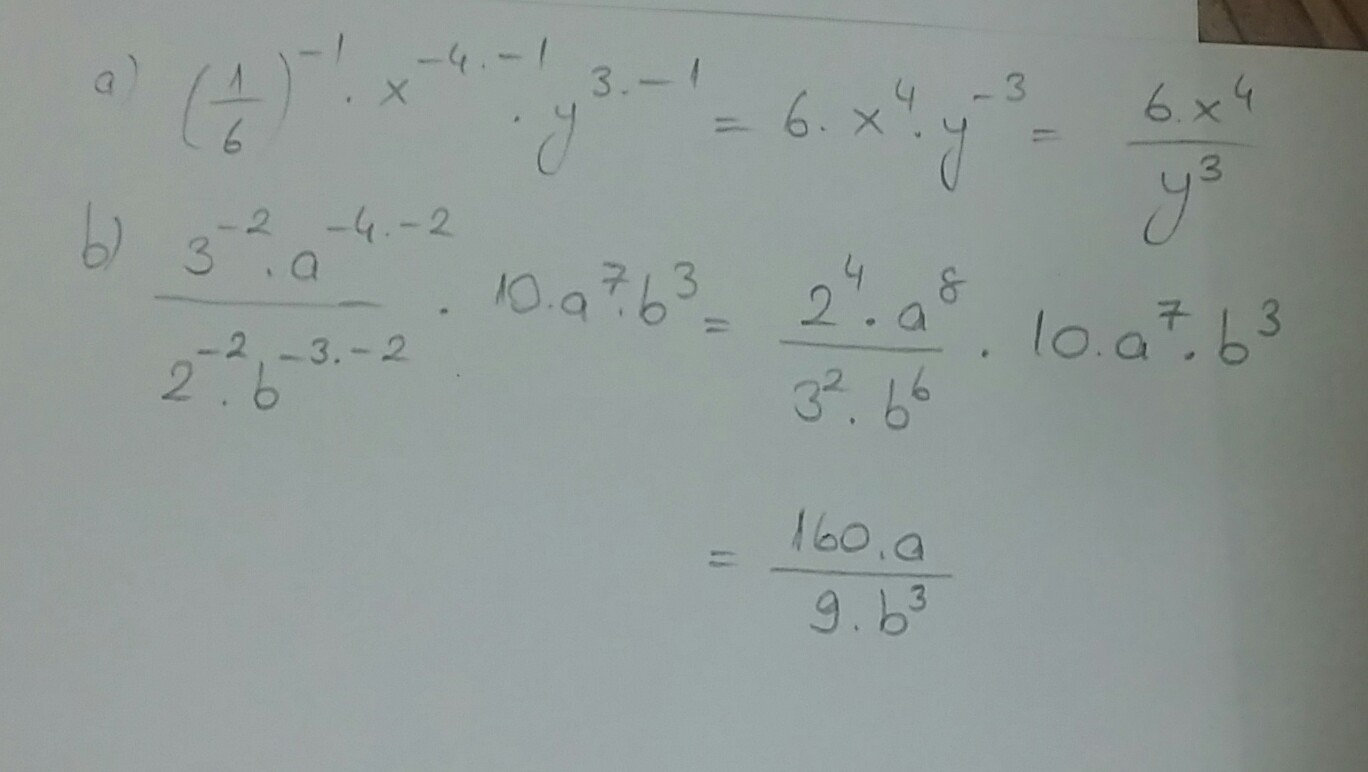 a) (1/6)^-1 . x^-4.-1 . y^3.-1 = 6. x^4 . y^-3 = 6.x^4/y^3
b) 3^-2 . a^-4.-2 / 2^-2 . b^-3.-2 . 10.a^7.b^3 = 2^4 . a^8 / 3^2 . b^6 . 10.a^7.b^3
= 160.a / 9.b^3